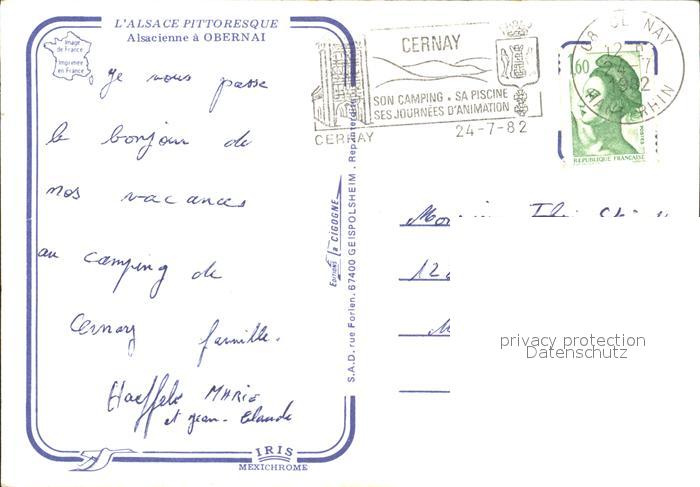 L'ALSACE PITTORESQUE
Alsacienne à OBERNAI
Image
de France
Imprimée
en France
Je vous passe
le bonjour de
nos vacances
au camping de
Cernay famille.
Haeffelé MARIE
et Jean-Claude
IRIS
MEXICHROME
Editions la CIGOGNE
S.A.D. rue Forlen. 67400 GEISPOLSHEIM. Rep. interdite
CERNAY
CERNAY
SON CAMPING. SA PISCINE
SES JOURNÉES D'ANIMATION
24-7-82
1982
HAUT RHIN
1,60
POSTES
REPUBLIQUE FRANÇAISE
privacy protection
Datenschutz